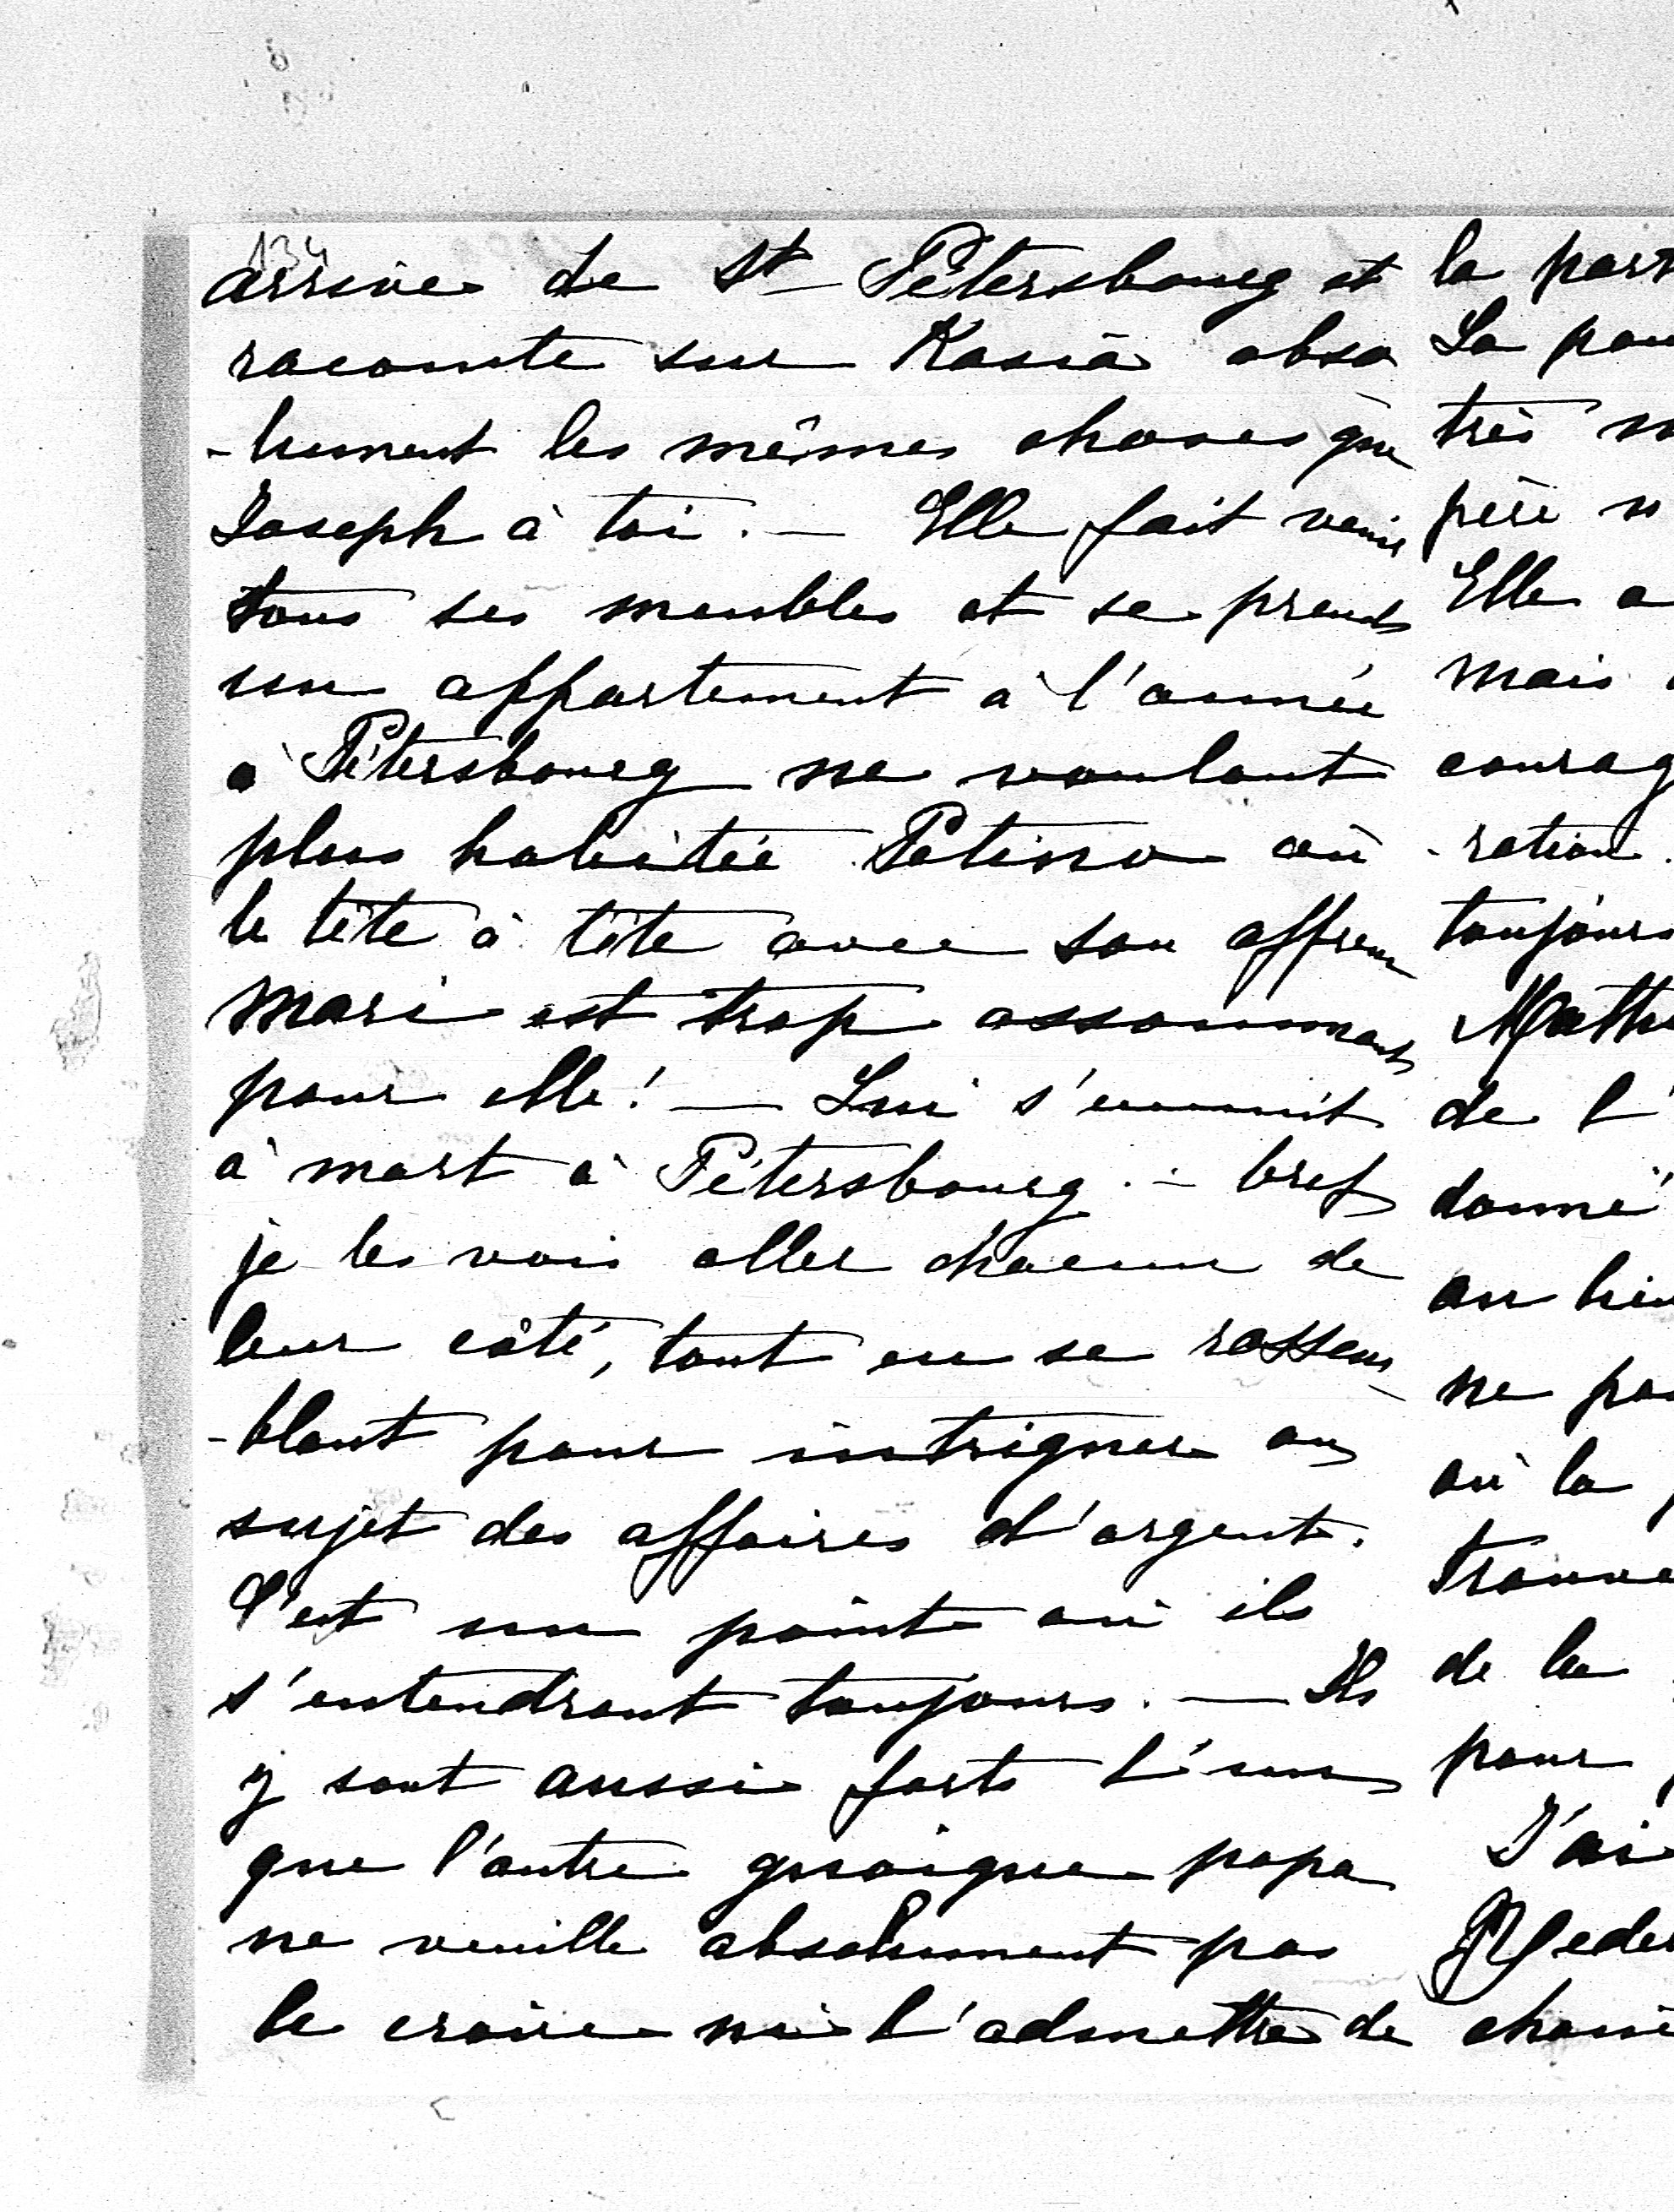 134
arrive de St Pétersbourg et
raconte sur Kasia abso
-lument les mêmes choses que
Joseph à toi. — Elle fait venir
tous ses meubles et se prends
un appartement à l'année
à Pétersbourg ne voulant
plus habitée Patino où
le tête à tête avec son affreux
mari est trop assommant
pour elle! — Lui s'ennuit
à mort à Pétersbourg. - bref
je les vois aller chacun de
leur côté, tout en se rassem
-blant pour intriguer au
sujet des affaires d'argent.
C'est un point où ils
s'entendront toujours. — Ils
y sont aussi forts l'un
que l'autre quoique papa
ne veuille absolument pas
le croire ni l'admettre de
la part
La pau
très
père
Elle a
mais
courag
-ration.
toujours
Math
de l'
donné
on
ne pa
où la
trouve
de la
pour
J'ai
choisi